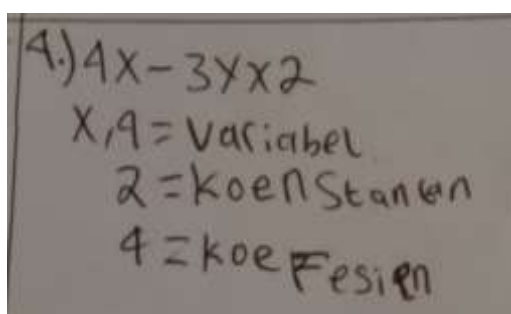 4.) 4x - 3yx2
x,y = Variabel
2 = koenstantan
4 = koeFesien